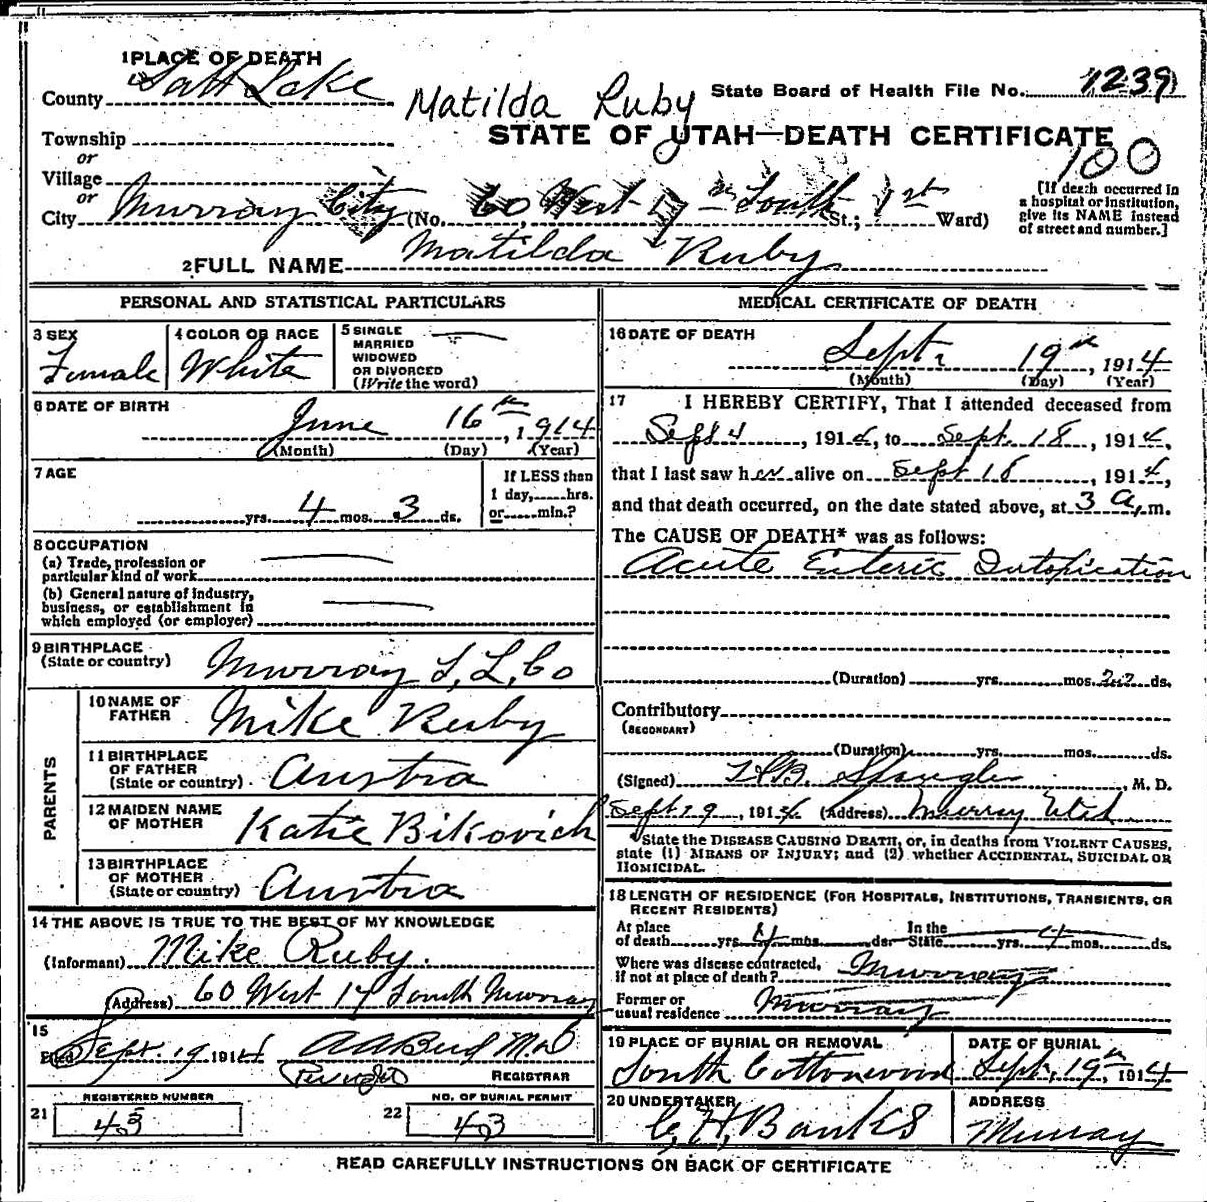 1 PLACE OF DEATH
County Salt Lake
Matilda Ruby
State Board of Health File No. 1239
Township
STATE OF UTAH—DEATH CERTIFICATE
or
100
Village
or
City Murray City (No. 60 West South St.; 1st Ward)
[If death occurred in
a hospital or institution,
give its NAME instead
of street and number.]
2 FULL NAME Matilda Ruby
PERSONAL AND STATISTICAL PARTICULARS
3 SEX
Female
4 COLOR OR RACE
White
5 SINGLE
MARRIED
WIDOWED
OR DIVORCED
(Write the word)
6 DATE OF BIRTH
June 16th, 1914
(Month) (Day) (Year)
7 AGE
yrs. 4 mos. 3 ds.
If LESS than
1 day, hrs.
or min.?
8 OCCUPATION
(a) Trade, profession or
particular kind of work
(b) General nature of industry,
business, or establishment in
which employed (or employer)
9 BIRTHPLACE
(State or country)
Murray S, L, Co
PARENTS
10 NAME OF
FATHER
Mike Ruby
11 BIRTHPLACE
OF FATHER
(State or country)
Austra
12 MAIDEN NAME
OF MOTHER
Katie Bikovich
13 BIRTHPLACE
OF MOTHER
(State or country)
Austra
14 THE ABOVE IS TRUE TO THE BEST OF MY KNOWLEDGE
(Informant) Mike Ruby.
(Address) 60 West 17 South Murray
15
Filed Sept. 19 1914
REGISTRAR
REGISTERED NUMBER
21 43
NO. OF BURIAL PERMIT
22 43
MEDICAL CERTIFICATE OF DEATH
16 DATE OF DEATH
Sept. 19th, 1914
(Month) (Day) (Year)
17 I HEREBY CERTIFY, That I attended deceased from
Sept 4, 1914, to Sept. 18, 1914,
that I last saw her alive on Sept 18, 1914,
and that death occurred, on the date stated above, at 3 a, m.
The CAUSE OF DEATH* was as follows:
Acute Enteric Intoxication
(Duration) yrs. mos. 22 ds.
Contributory
(SECONDARY)
(Duration) yrs. mos. ds.
(Signed) , M. D.
Sept 19, 1914 (Address) Murray Utah
*State the DISEASE CAUSING DEATH, or, in deaths from VIOLENT CAUSES,
state (1) MEANS OF INJURY; and (2) whether ACCIDENTAL, SUICIDAL OR
HOMICIDAL.
18 LENGTH OF RESIDENCE (FOR HOSPITALS, INSTITUTIONS, TRANSIENTS, OR
RECENT RESIDENTS)
At place
of death yrs. 4 mos. ds.
In the
State yrs. 4 mos. ds.
Where was disease contracted,
if not at place of death? Murray
Former or
usual residence Murray
19 PLACE OF BURIAL OR REMOVAL
South Cottonwood
DATE OF BURIAL
Sept, 19th, 1914
20 UNDERTAKER
C, H, Banks
ADDRESS
Murray
READ CAREFULLY INSTRUCTIONS ON BACK OF CERTIFICATE